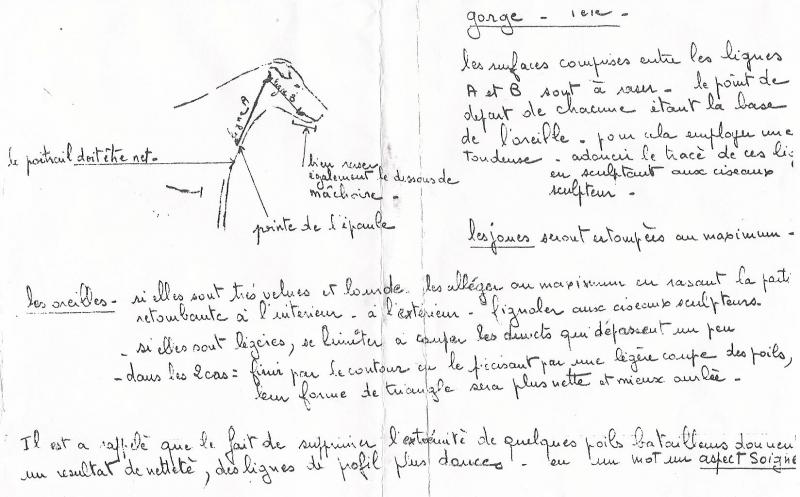 gorge - tete -
les surfaces comprises entre les lignes
A et B sont à raser - le point de
depart de chacune étant la base
de l'oreille - pour cela employer une
tondeuse - adoucir le tracè de ces lig
en sculptant aux ciseaux
sculpteur -
ligne A
ligne B
le poitrail doit être net -
bien raser
également le dessous de
mâchoire -
pointe de l'épaule
les joues seront estompées au maximum -
les oreilles - si elles sont très velues et lourde les alléger au maximum en rasant la parti
retombante à l'interieur - à l'extérieur - fignoler aux ciseaux sculpteurs.
- si elles sont légères, se limiter a couper les duvets qui dépassent un peu
- dans les 2 cas = finir par le contour en le précisant par une légère coupe des poils,
leur forme de triangle sera plus nette et mieux ourlée -
Il est a rappelè que le fait de supprimer l'extrémité de quelques poils batailleurs donnent
un resultat de netteté, des lignes de profil plus douces - en un mot un aspect Soigné